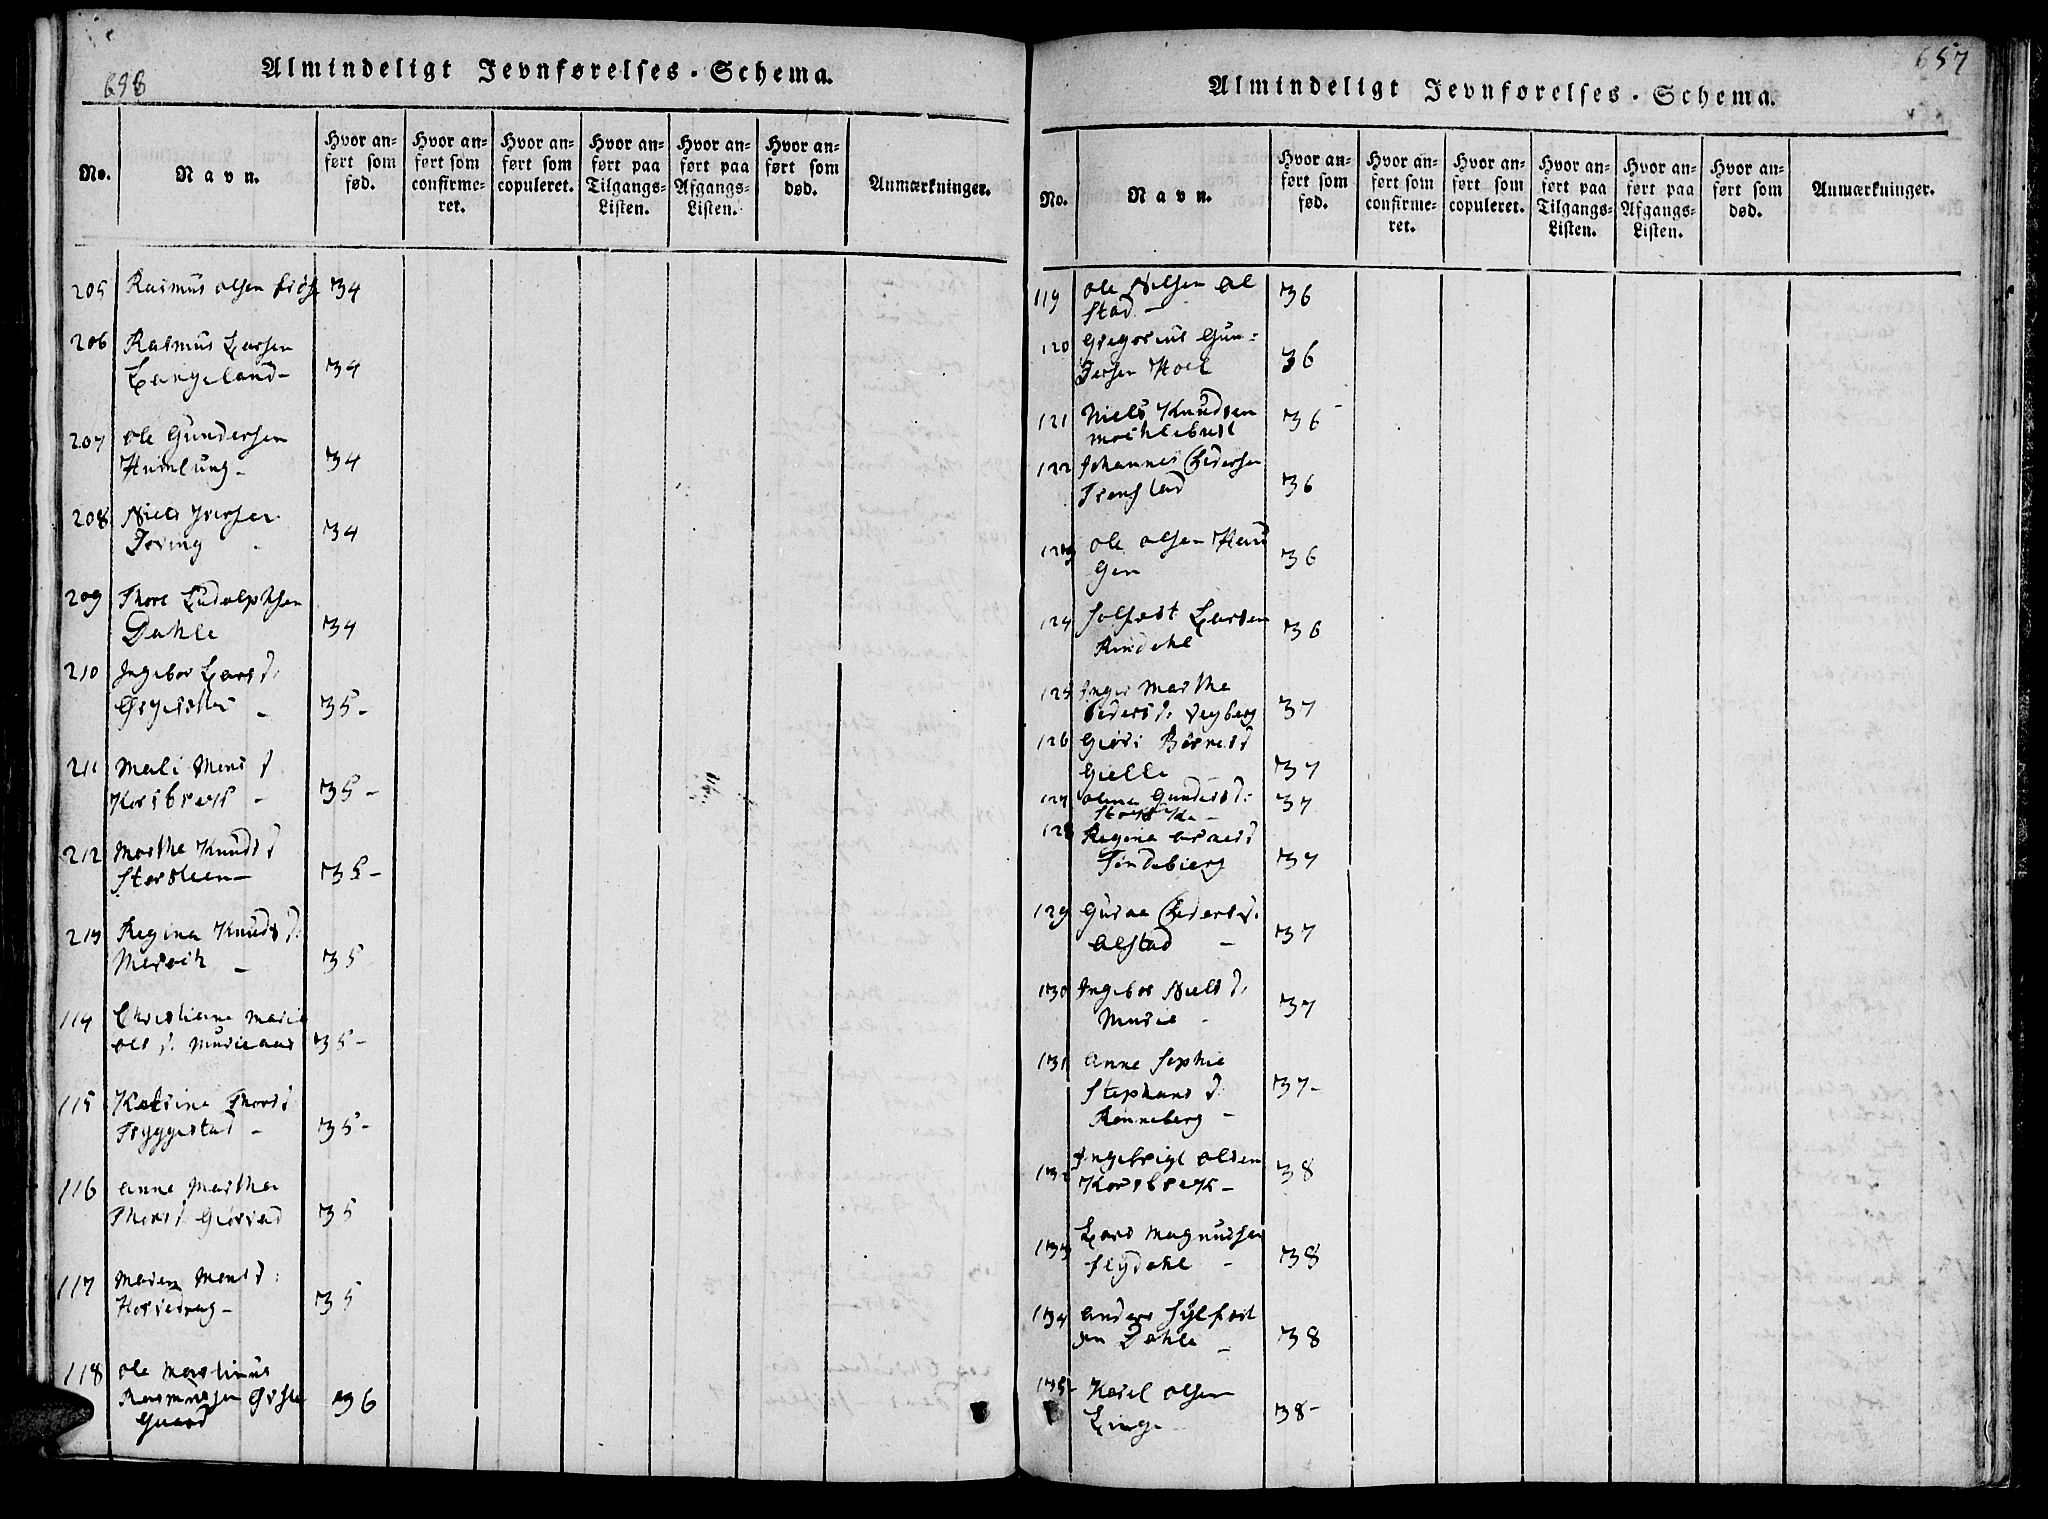 698
Almindeligt Jevnførelses-Schema.
No.
Navn.
Hvor an-
ført som
fød.
Hvor an-
ført som
confirme-
ret.
Hvor an-
ført som
copuleret.
Hvor an-
ført paa
Tilgangs-
Listen.
Hvor an-
ført paa
Afgangs-
Listen.
Hvor an-
ført som
død.
Anmærkninger.
205 Rasmus olsen 34
206 Rasmus Larsen
Langeland- 34
207 ole Gundersen
Humlung- 34
208 Niels Iversen
34
209 Thore Ludolphsen
Dahle 34
210 Ingebor Lars d:
35-
211 Mali Mons d
Korsbrek - 35-
212 Marthe Knuds d
Storsteen- 35-
213 Regina Knuds d:
Merock - 35
114 Christiane Marie
ols d. Muriaas 35-
115 Katrine Thors d
Tryggestad - 35-
116 anne Marthe
Thors d Giørstad 35
117 Maren Mons d:
- 35
118 ole Martinus
Rasmussen
Guard 36
657
Almindeligt Jevnførelses-Schema.
No.
Navn.
Hvor an-
ført som
fød.
Hvor an-
ført som
confirme-
ret.
Hvor an-
ført som
copuleret.
Hvor an-
ført paa
Tilgangs-
Listen.
Hvor an-
ført paa
Afgangs-
Listen.
Hvor an-
ført som
død.
Anmærkninger.
119 ole Nilsen al
stad - 36
120 Gregorius Gun=
dersen Hoel 36
121 Niels Knudsen
Moihlebust 36
122 Johannes Pedersen
36
123 ole olsen Hau
gen 36
124 Solfest Larsen
Rindahl 36
125 Inger Martha
Peders d: Vegberg 37
126 Giøri
Gielle 37
127 olina Gunders d:
37
128 Regina
Tindebierg 37
129 Guroe Peders d:
alstad - 37
130 Ingebor Niels d:
Murie - 37
131 anne Sophie
Stephans d:
Rønneberg - 37-
132 Ingebrigt olsen
Korsbrek- 38
133 Lars Magnussen
Flydahl - 38
134 anders Sylfest
sen Dahle - 38
135 Karel olsen
Linge 38-